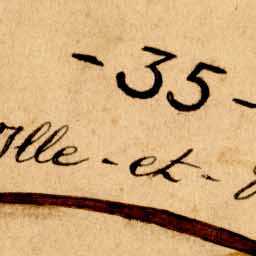 -35-
Ille-et-